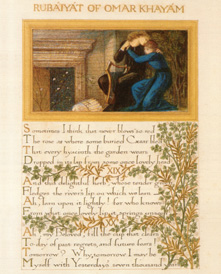 RUBAIYAT OF OMAR KHAYAM
Sometimes I think that never blows so red
The rose as where some buried Cæsar
That every hyacinth the garden wears
Dropped in its lap from some once lovely head
XIX
And this delightful herb whose tender
Fledges the river's lip on which we lean
Ah! lean upon it lightly! for who knows
From what once lovely lip it springs
Ah! my Beloved, fill the cup that clears
To-day of past regrets, and future fears
Tomorrow? Why, tomorrow I may be
Myself with Yesterdays seven thousand